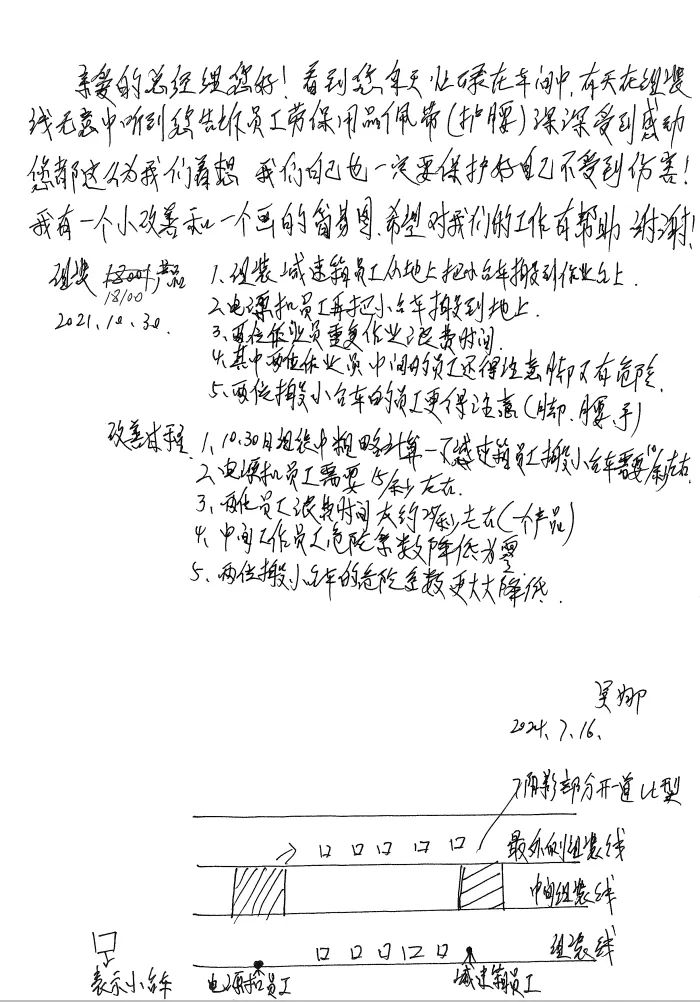 亲爱的总经理您好！看到您每天忙碌在车间中，有天在组装
线无意中听到您告诉员工劳保用品佩带(护腰)深深受到感动
您都这么为我们着想 我们自己也一定要保护好自己不受到伤害！
我有一个小改善和一个画的简易图.希望对我们的工作有帮助 谢谢！
组装 产品 1、组装减速箱员工从地上把小台车搬到作业台上.
18100
2021.10.30. 2、电源机员工再把小台车搬到地上.
3、两位作业员重复作业浪费时间.
4、其中两位作业员中间的员工还得注意脚又有危险.
5、两位搬小台车的员工更得注意(脚、腰、手)
改善过程 1、10.30日组装中粗略计算一下减速箱员工搬小台车需要10/秒左右
2、电源机员工需要15/秒左右.
3、两位员工浪费时间大约25秒左右(一个产品)
4、中间工作员工危险系数降低为零
5、两位搬小台车的危险系数更大大降低.
吴娜
2024.7.16.
阴影部分开一道 U型
最外侧组装线
中间组装线
组装线
表示小台车 电源机员工 减速箱员工